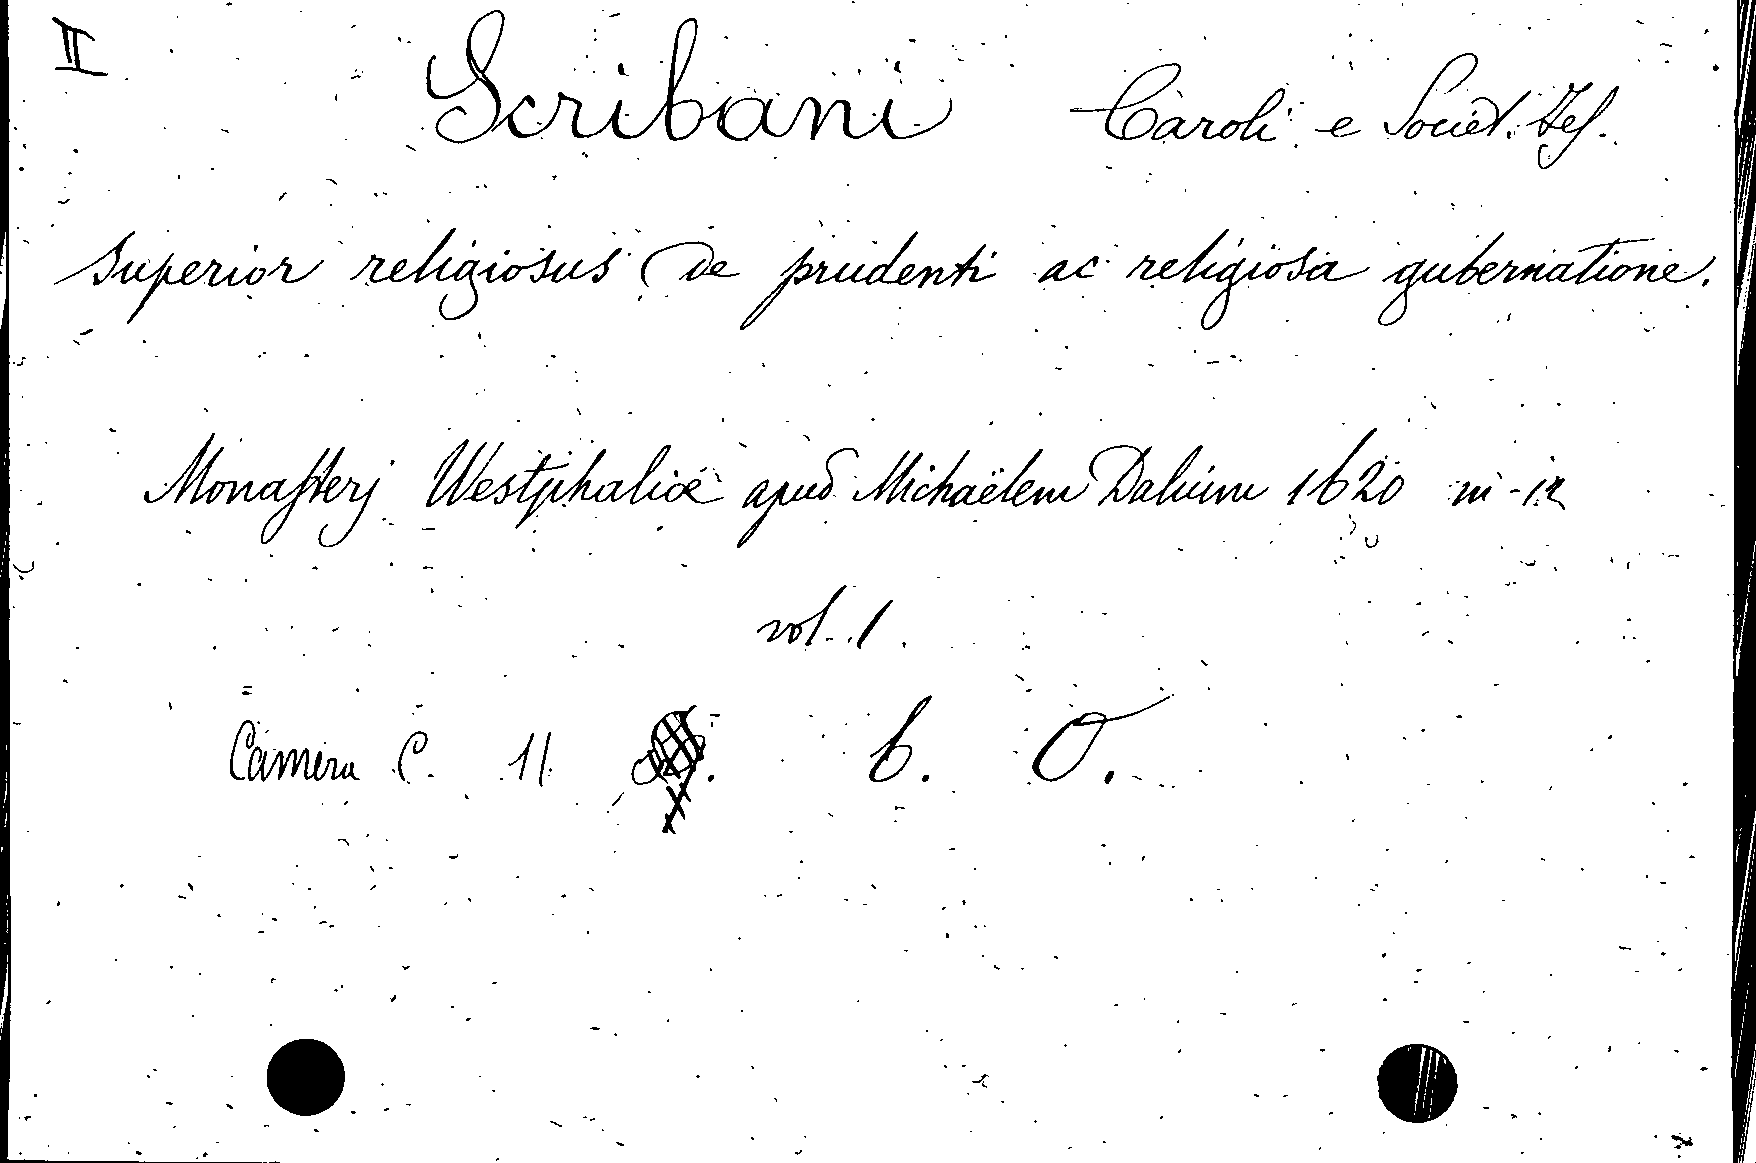 II
Scribani Caroli e Societ. Jes.
Superior religiosus de prudenti ac religiosa gubernatione.
Monasterj Westphaliæ apud Michaëlem Dalium 1620 in-12
vol. 1.
Camera C. 11 b. O.